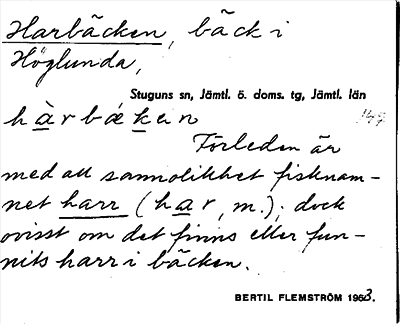 Harbäcken, bäck i
Höglunda,
Stuguns sn, Jämtl. ö. doms. tg, Jämtl. län
hàrbáken
Förleden är
med all sannolikhet fisknam-
net harr (har, m.); dock
ovisst om det finns eller fun-
nits harr i bäcken.
BERTIL FLEMSTRÖM 1963.